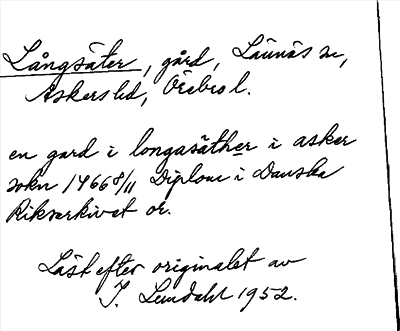 Långsäter, gård, Lännäs sn,
Askers hd, Örebro l.
en gard i longasäther i asker
sokn 1466 8/11 Diplom i Danska
Riksarkivet or.
Läst efter originalet av
J. Lundahl 1952.